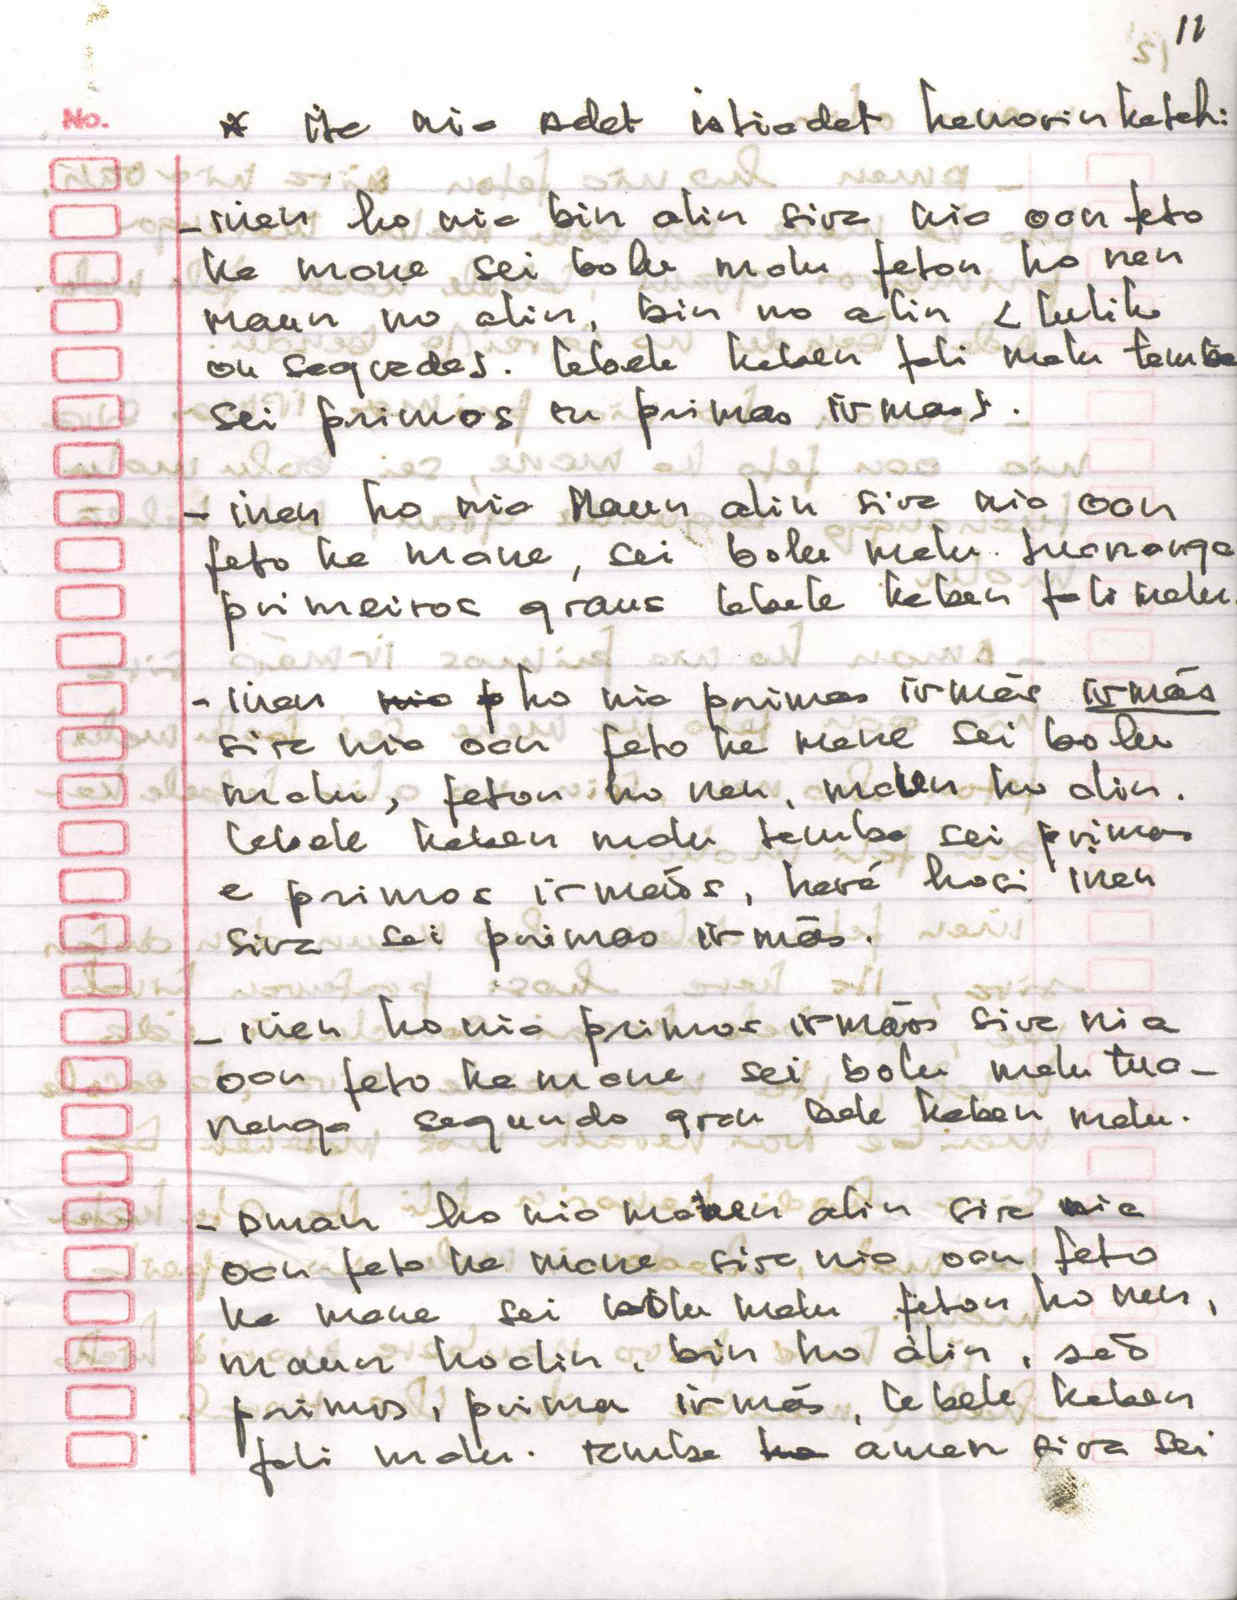 11
No.
* ita nia adat istiadat hanorin katak:
- inan ho nia bin alin sira nia oan feto
ka mane sei bolu malu feton ho nan
maun no alin, bin no alin
ou sagradas. labele kaben fali malu tamba
sei primos ou primas irmas.
- inan ho nia Maun alin sira nia oan
feto ka mane, sei bolu malu tuananga
primeiros graus bele kaben fali malu.
- inan ho nia primas irmãs irmãs
sira nia oan feto ka mane sei bolu
malu, feton ho nan, maun ho alin.
labele kaben malu tamba sei primas
e primos irmãos, hosi inan
sira sei primas irmãs.
- inan ho nia primos irmãos sira nia
oan feto ka mane sei bolu malu tua-
nanga segundo grau bele kaben malu.
- aman ho nia maun alin sira nia
oan feto ka mane sira nia oan feto
ka mane sei bolu malu feton ho nan,
maun ho alin, bin ho alin, são
primos, prima irmãs, labele kaben
fali malu. tamba aman sira sei